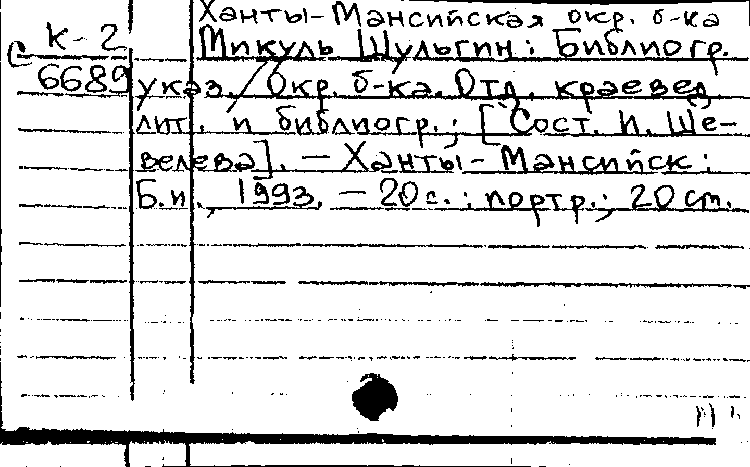 Ханты-Мансийская окр. б-ка
К-2 Микуль Шульгин: Библиогр.
С 6689 указ. / Окр. б-ка. Отд. краевед.
лит. и библиогр.; [Сост. И. Ше-
велева]. — Ханты-Мансийск:
Б.и., 1993. — 20 с.: портр.; 20 см.